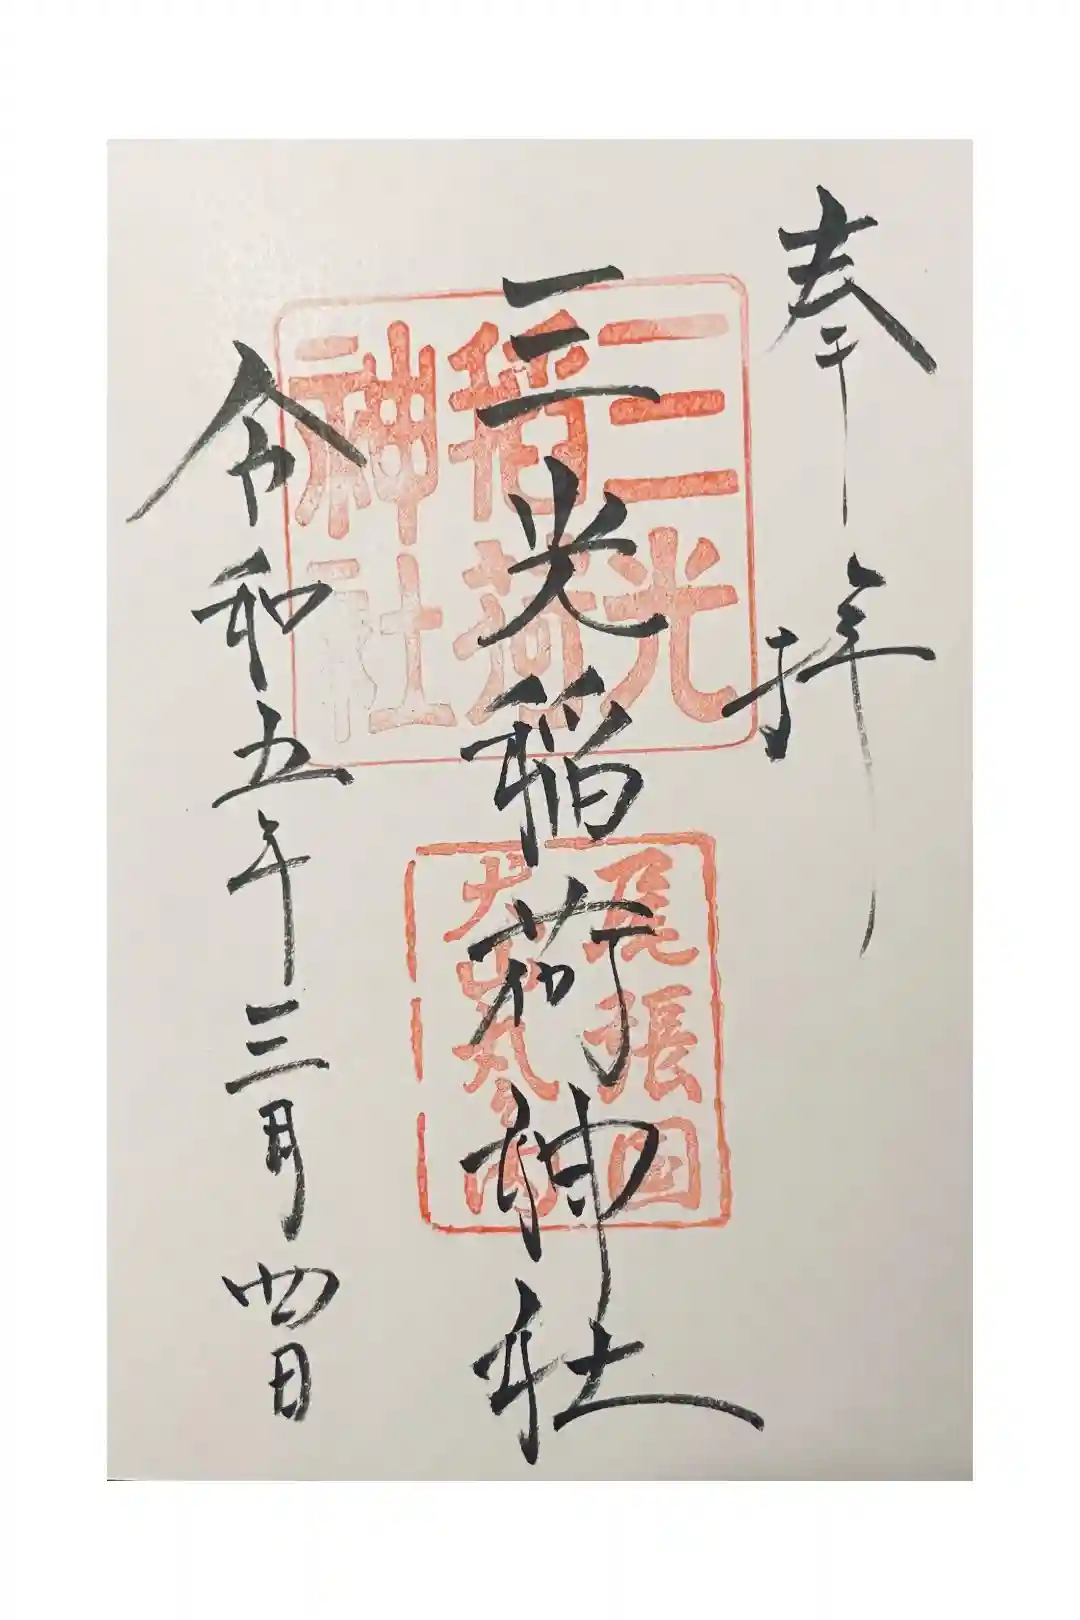 奉拝
三光稲荷神社
令和五年三月四日
三光
稲荷
神社
尾張国
犬山丸之内